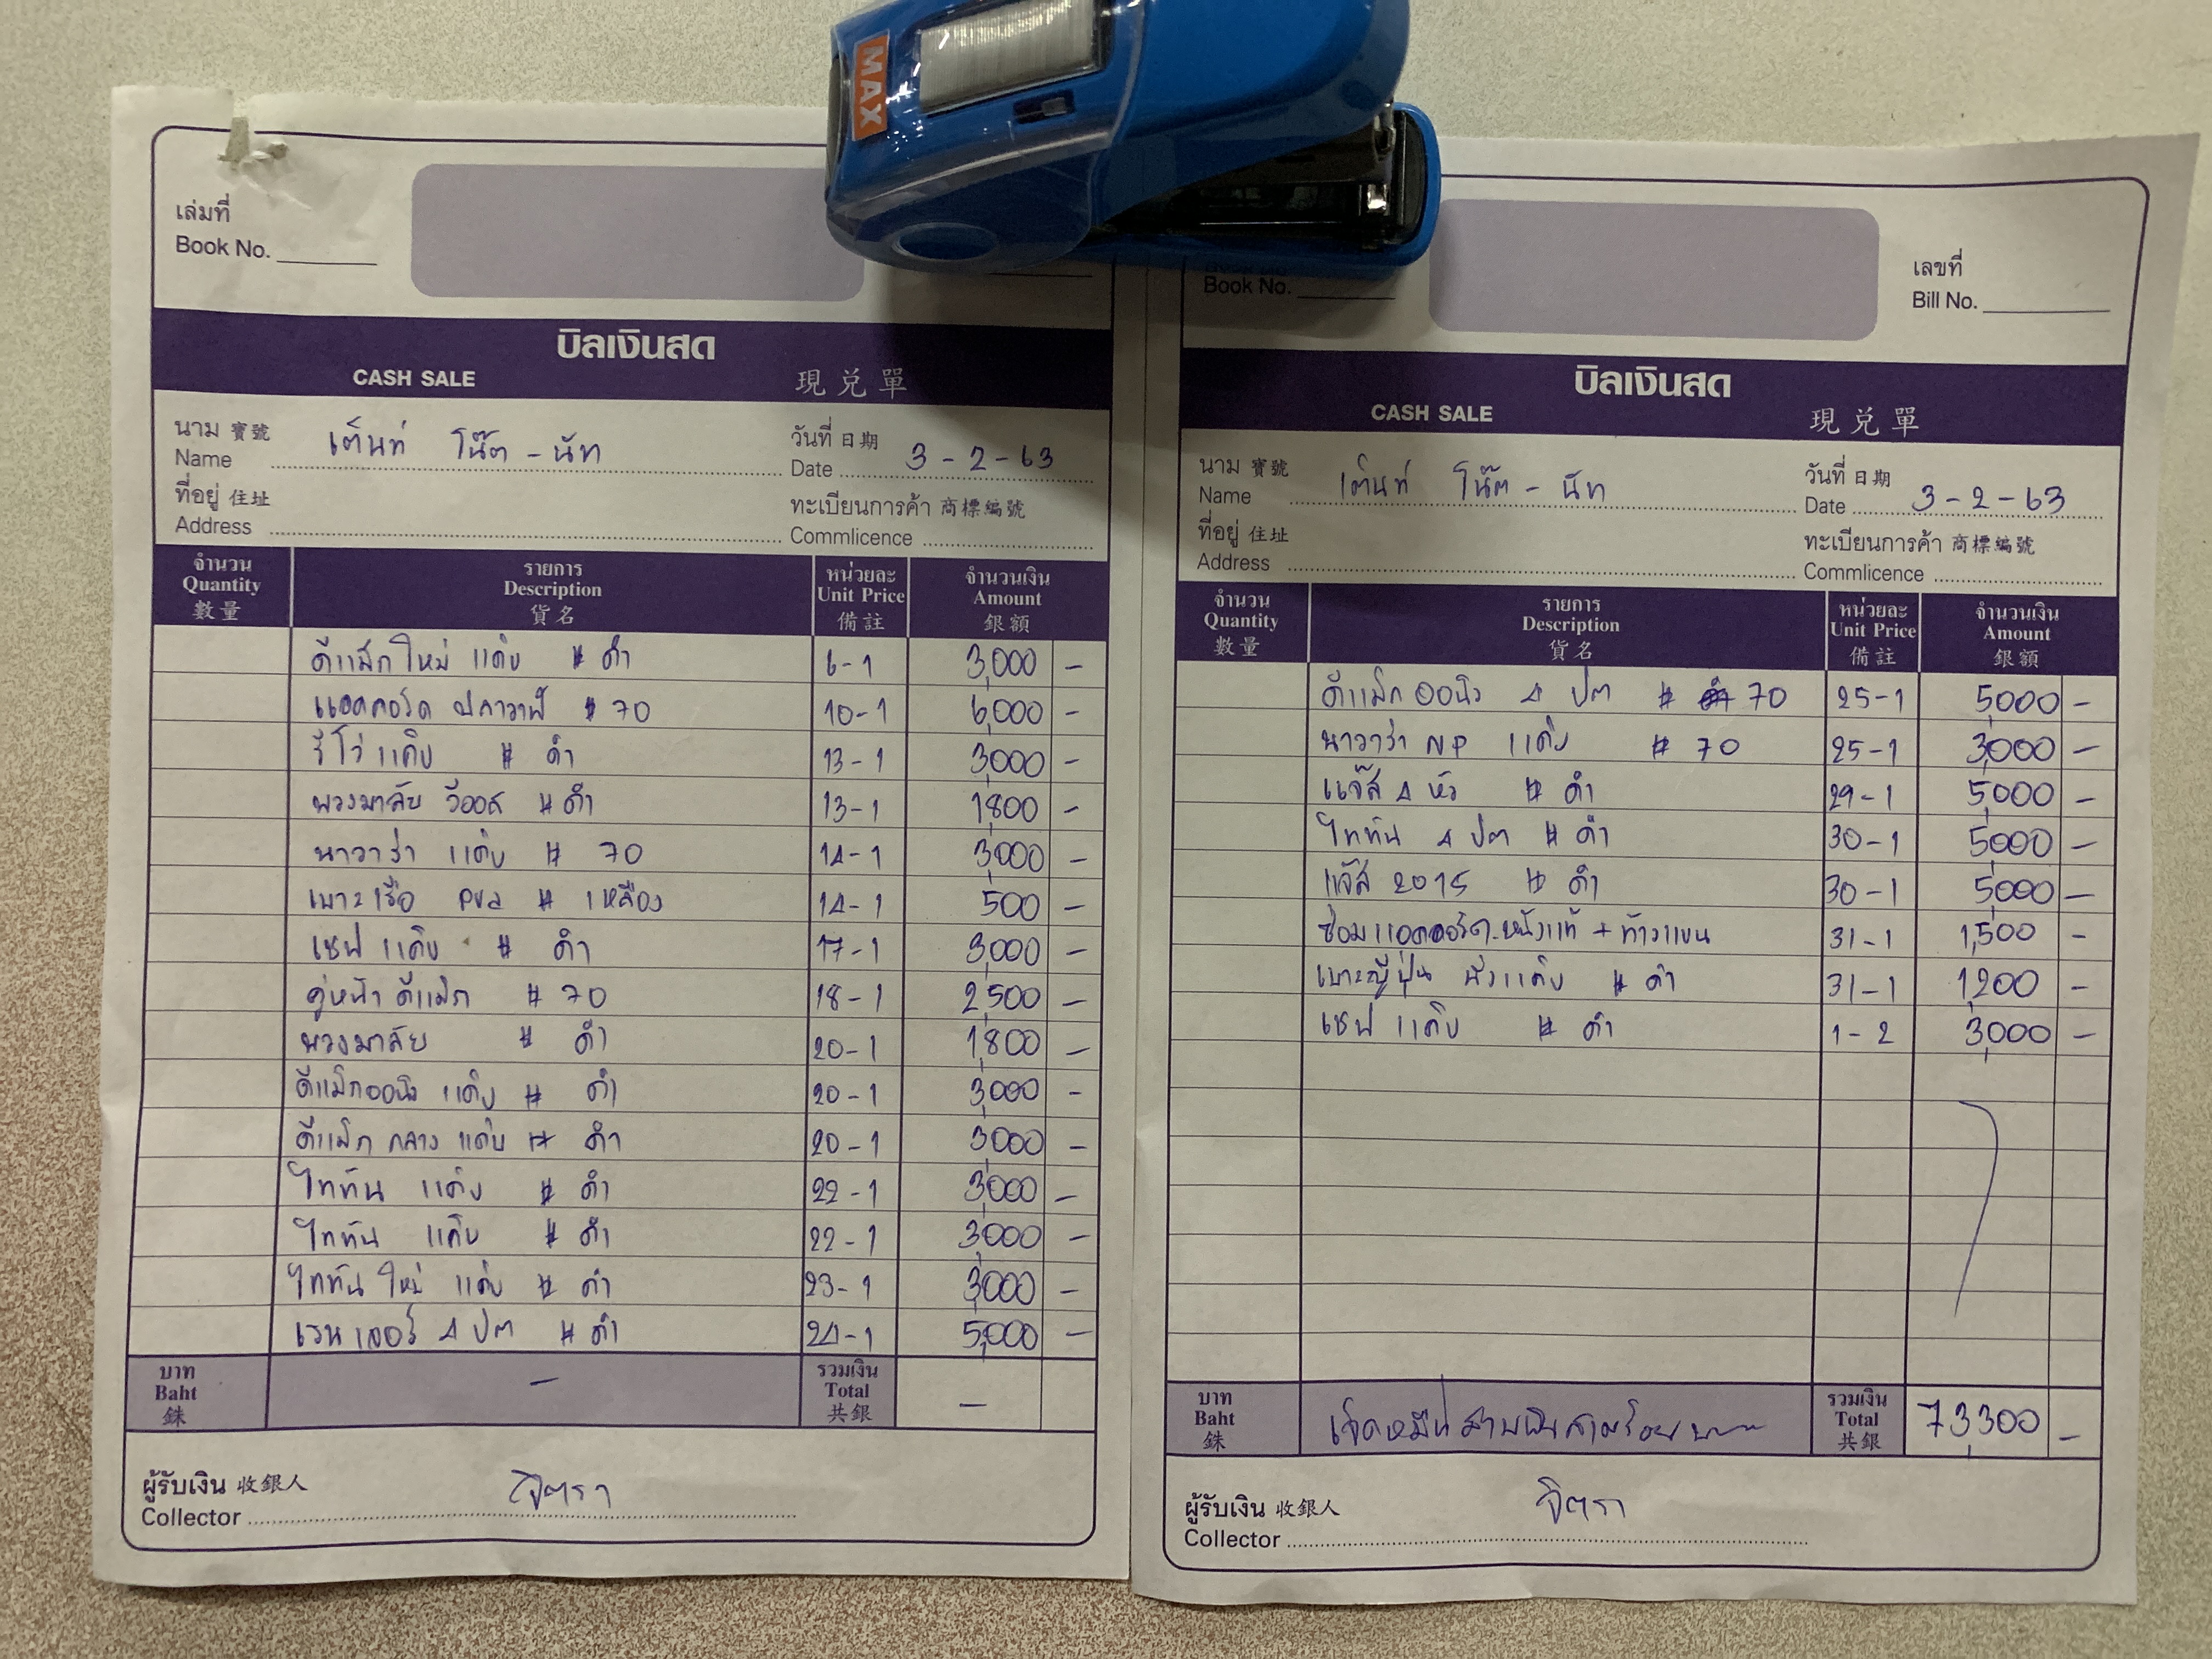 MAX
เล่มที่
Book No.
บิลเงินสด
CASH SALE 現兌單
นาม 寶號 เต็นท์ โน๊ต - นัท วันที่ 日期 3 - 2 - 63
Name Date
ที่อยู่ 住址 ทะเบียนการค้า 商標編號
Address Commlicence
จำนวน รายการ หน่วยละ จำนวนเงิน
Quantity Description Unit Price Amount
數量 貨名 備註 銀額
ดีแม็กใหม่ แค็บ # ดำ 6-1 3,000 -
แอคคอร์ด ปลาวาฬ # 70 10-1 6,000 -
รีโว่ แค็บ # ดำ 13-1 3,000 -
พวงมาลัย วีออส # ดำ 13-1 1,800 -
นาวาร่า แค็บ # 70 14-1 3,000 -
เบาะเรือ PVC # เหลือง 14-1 500 -
เชฟ แค็บ # ดำ 17-1 3,000 -
คู่หน้า ดีแม็ก # 70 18-1 2,500 -
พวงมาลัย # ดำ 20-1 1,800 -
ดีแม็กออนิว แค็บ # ดำ 20-1 3,000 -
ดีแม็ก กลาง แค็บ # ดำ 20-1 3,000 -
ไททัน แค็บ # ดำ 22-1 3,000 -
ไททัน แค็บ # ดำ 22-1 3,000 -
ไททัน ใหม่ แค็บ # ดำ 23-1 3,000 -
เรนเจอร์ 4 ปต # ดำ 24-1 5,000 -
บาท รวมเงิน
Baht - Total -
銖 共銀
ผู้รับเงิน 收銀人 จิตรา
Collector
Book No.
เลขที่
Bill No.
บิลเงินสด
CASH SALE 現兌單
นาม 寶號 เต็นท์ โน๊ต - นัท วันที่ 日期 3 - 2 - 63
Name Date
ที่อยู่ 住址 ทะเบียนการค้า 商標編號
Address Commlicence
จำนวน รายการ หน่วยละ จำนวนเงิน
Quantity Description Unit Price Amount
數量 貨名 備註 銀額
ดีแม็ก ออนิว 4 ปต # 70 25-1 5,000 -
นาวาร่า NP แค็บ # 70 25-1 3,000 -
แจ๊ส 4 หัว # ดำ 29-1 5,000 -
ไททัน 4 ปต # ดำ 30-1 5,000 -
แจ๊ส 2015 # ดำ 30-1 5,000 -
ซ่อมแอคคอร์ด หนังแท้ + ท้าวแขน 31-1 1,500 -
เบาะญี่ปุ่น นั่งแค็บ # ดำ 31-1 1,200 -
เชฟ แค็บ # ดำ 1-2 3,000 -
บาท รวมเงิน
Baht เจ็ดหมื่นสามพันสามร้อยบาท Total 73,300 -
銖 共銀
ผู้รับเงิน 收銀人 จิตรา
Collector